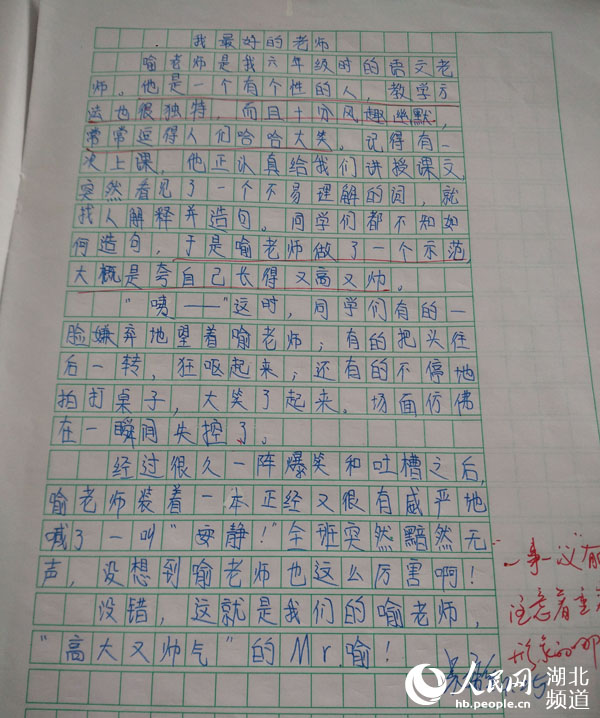 我最好的老师
喻老师是我六年级时的语文老
师。他是一个有个性的人，教学方
法也很独特，而且十分风趣幽默，
常常逗得人们哈哈大笑。记得有一
次上课，他正认真给我们讲授课文，
突然看见了一个不易理解的词，就
找人解释并造句。同学们都不知如
何造句，于是喻老师做了一个示范，
大概是夸自己长得又高又帅。
“咦——”这时，同学们有的一
脸嫌弃地望着喻老师，有的把头往
后一转，狂呕起来，还有的不停地
拍打桌子，大笑了起来。场面仿佛
在一瞬间失控了。
经过很久一阵爆笑和吐槽之后，
喻老师装着一本正经又很有威严地
喊了一叫“安静！”全班突然黯然无
声，没想到喻老师也这么厉害啊！
没错，这就是我们的喻老师，
“高大又帅气”的Mr.喻！
一事一议
注意着重
人民网 湖北
hb.people.cn 频道